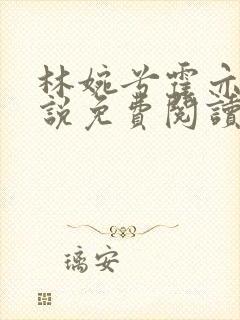 林婉兮霍亦
說免費閱讀
璃安